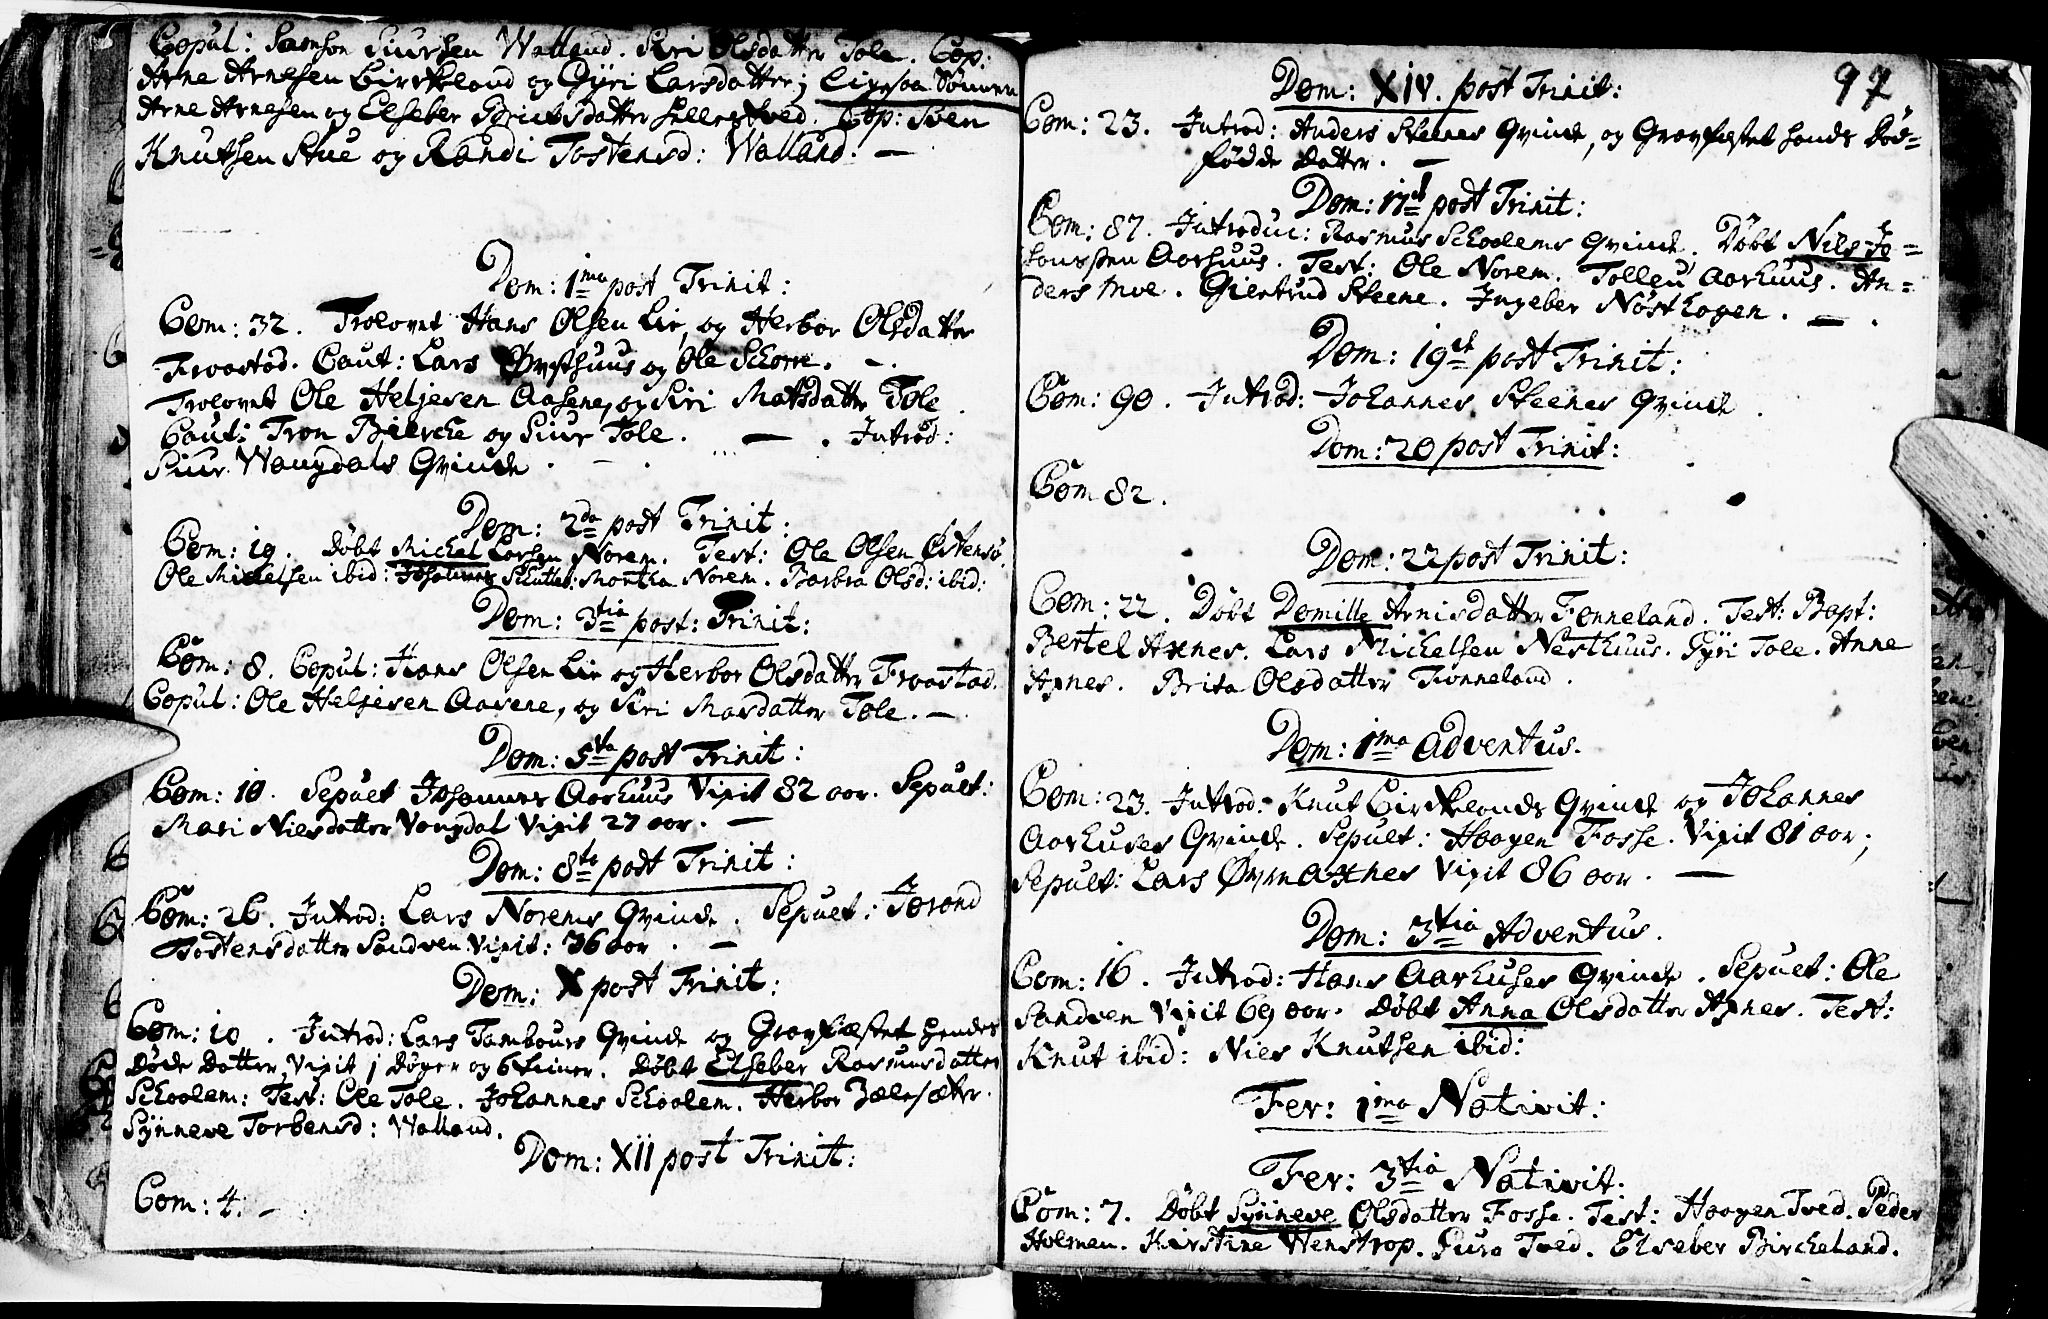 Copul: Samson Siursen Walland. Siri Olsdatter Tole. Cop:
Arne Arnesen Birkeland og Gyri Larsdatter;
Arne Arnesen og Elseber Brichsdatter Cop: Sven
Knutsen Stue og Randi Tostensd: Walland. —
Dom: 1ma post Trinit:
Com: 32. Trolovet Hans Olsen Lie, og Herbor Olsdatter
Froastad. Caut: Lars Øvsthuus og Ole Skorre. —.
Trolovet Ole Heljesen Aasene, og Siri Matsdatter Tole.
Caut: Tron Bierche og Siur Tole. — . Introd:
Siur Wangdals Qvinde. — .
Dom: 2da post Trinit:
Com: 19. Døbt Michel Larsen Norem. Test: Ole Olsen Østensø.
Ole Michelsen ibid: Johannes Martha Norem. Barbra Olsd: ibid:
Dom: 3tia post: Trinit:
Com: 8. Copul: Hans Olsen Lie og Herbor Olsdatter Froastad.
Copul: Ole Heljesen Aasene, og Siri Masdatter Tole. —
Dom: 5ta post Trinit:
Com: 10. Sepult Johannes Aarhuus Vixit 82 aar. Sepult:
Mari Nielsdatter Vangdal Vixit 27 aar. —
Dom: 8te post Trinit:
Com: 26. Introd: Lars Norems Qvinde. Sepult: Jorand
Tostensdatter Sandven Vixit: 36 aar. —
Dom: X post Trinit:
Com: 10. Introd: Lars Tambours Qvinde og Gravfæstet hendes
Døde Datter, Vixit 1 Døgen og 6 timer. Døbt Elseber Rasmusdatter
Schoolem: Test: Ole Tole. Johannes Schoolem. Herbor
Synneve Torbensd: Walland.
Dom: XII post Trinit:
Com: 4: —
97
Dom: XIV. post Trinit:
Com: 23. Introd: Anders Steenes Qvinde, og Gravfæstet hands Død=
fødde Datter. —
Dom: 17de post Trinit:
Com: 87. Introduc: Rasmus Schoolems Qvinde. Døbt Nils Jo=
hanssen Aarhuus. Test: Ole Norem. Tolleu Aarhuus. An=
ders Moe. Giertrud Steene. Ingeber Nösthagen. — .
Dom: 19de post Trinit:
Com: 90. Introd: Johannes Steenes Qvinde.
Dom: 20 post Trinit:
Com 82.
Dom: 22 post Trinit:
Com: 22. Døbt Domille Arnisdatter Fonneland. Test: Bapt:
Bertel Axnes. Lars Michelsen Nesthuus. Gyri Tole. Anne
Axnes. Brita Olsdatter Fonneland.
Dom: 1ma Adventus.
Com: 23. Introd: Knut Birkelands Qvinde og Johannes
Aarhuses Qvinde. Sepult: Haagen Fosse. Vixit 81 aar;
Sepult: Lars Øvreaxnes Vixit 86 aar. —
Dom: 3tia Adventus.
Com: 16. Introd: Hans Aarhuses Qvinde. Sepult: Ole
Sandven Vixit 69 aar. Døbt Anna Olsdatter Axnes. Test:
Knut ibid: Niels Knutsen ibid:
Fer: 1ma Nativit:
Fer: 3tia Nativit:
Com: 7. Døbt Synneve Olsdatter Fosse. Test: Haagen Tved. Peder
Holmen. Kirstine Wenstrop. Gura Tved. Elseber Bircheland.